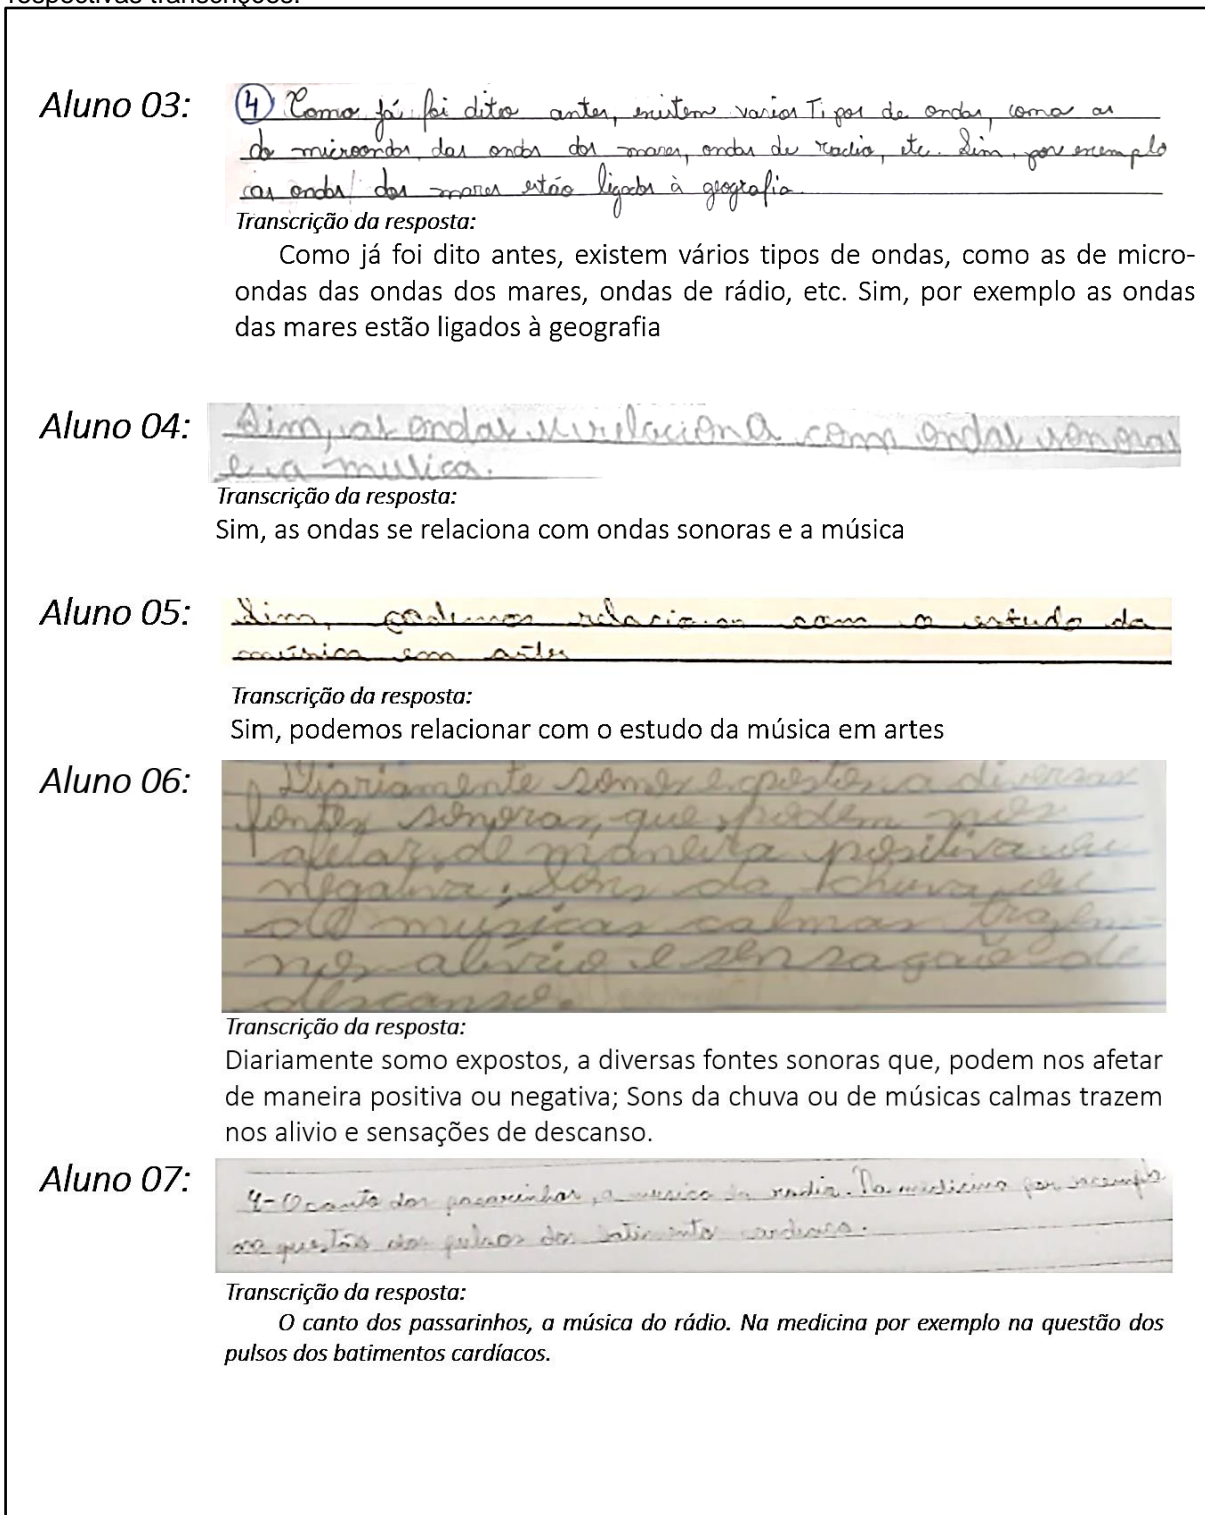 respectivas transcrições:
Aluno 03:
4 Como já foi dito antes, existem varios Tipos de ondas, como as
do microondas, das ondas dos mares, ondas de radio, etc. Sim, por exemplo
as ondas dos mares estão ligadas à geografia.
Transcrição da resposta:
Como já foi dito antes, existem vários tipos de ondas, como as de micro-
ondas das ondas dos mares, ondas de rádio, etc. Sim, por exemplo as ondas
das mares estão ligados à geografia
Aluno 04:
Sim, as ondas se relaciona com ondas sonoras
e a musica.
Transcrição da resposta:
Sim, as ondas se relaciona com ondas sonoras e a música
Aluno 05:
Sim, podemos relacionar com o estudo da
música em artes
Transcrição da resposta:
Sim, podemos relacionar com o estudo da música em artes
Aluno 06:
Diariamente somos expostos, a diversas
fontes sonoras, que, podem nos
afetar, de maneira positiva ou
negativa; Sons da chuva, ou
de músicas calmas trazem-
nos alivio e sensação de
descanso.
Transcrição da resposta:
Diariamente somo expostos, a diversas fontes sonoras que, podem nos afetar
de maneira positiva ou negativa; Sons da chuva ou de músicas calmas trazem
nos alivio e sensações de descanso.
Aluno 07:
4-O canto dos passarinhos, a musica do radio. Na medicina por exemplo
na questão dos pulsos dos batimento cardiaco.
Transcrição da resposta:
O canto dos passarinhos, a música do rádio. Na medicina por exemplo na questão dos
pulsos dos batimentos cardíacos.